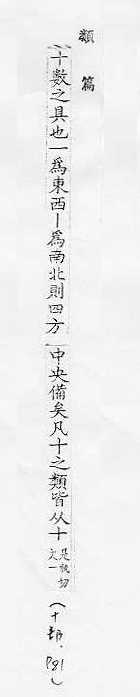 類篇
十數之具也一爲東西丨爲南北則四方中央備矣凡十之類皆从十是執切文一
(十部, P81)